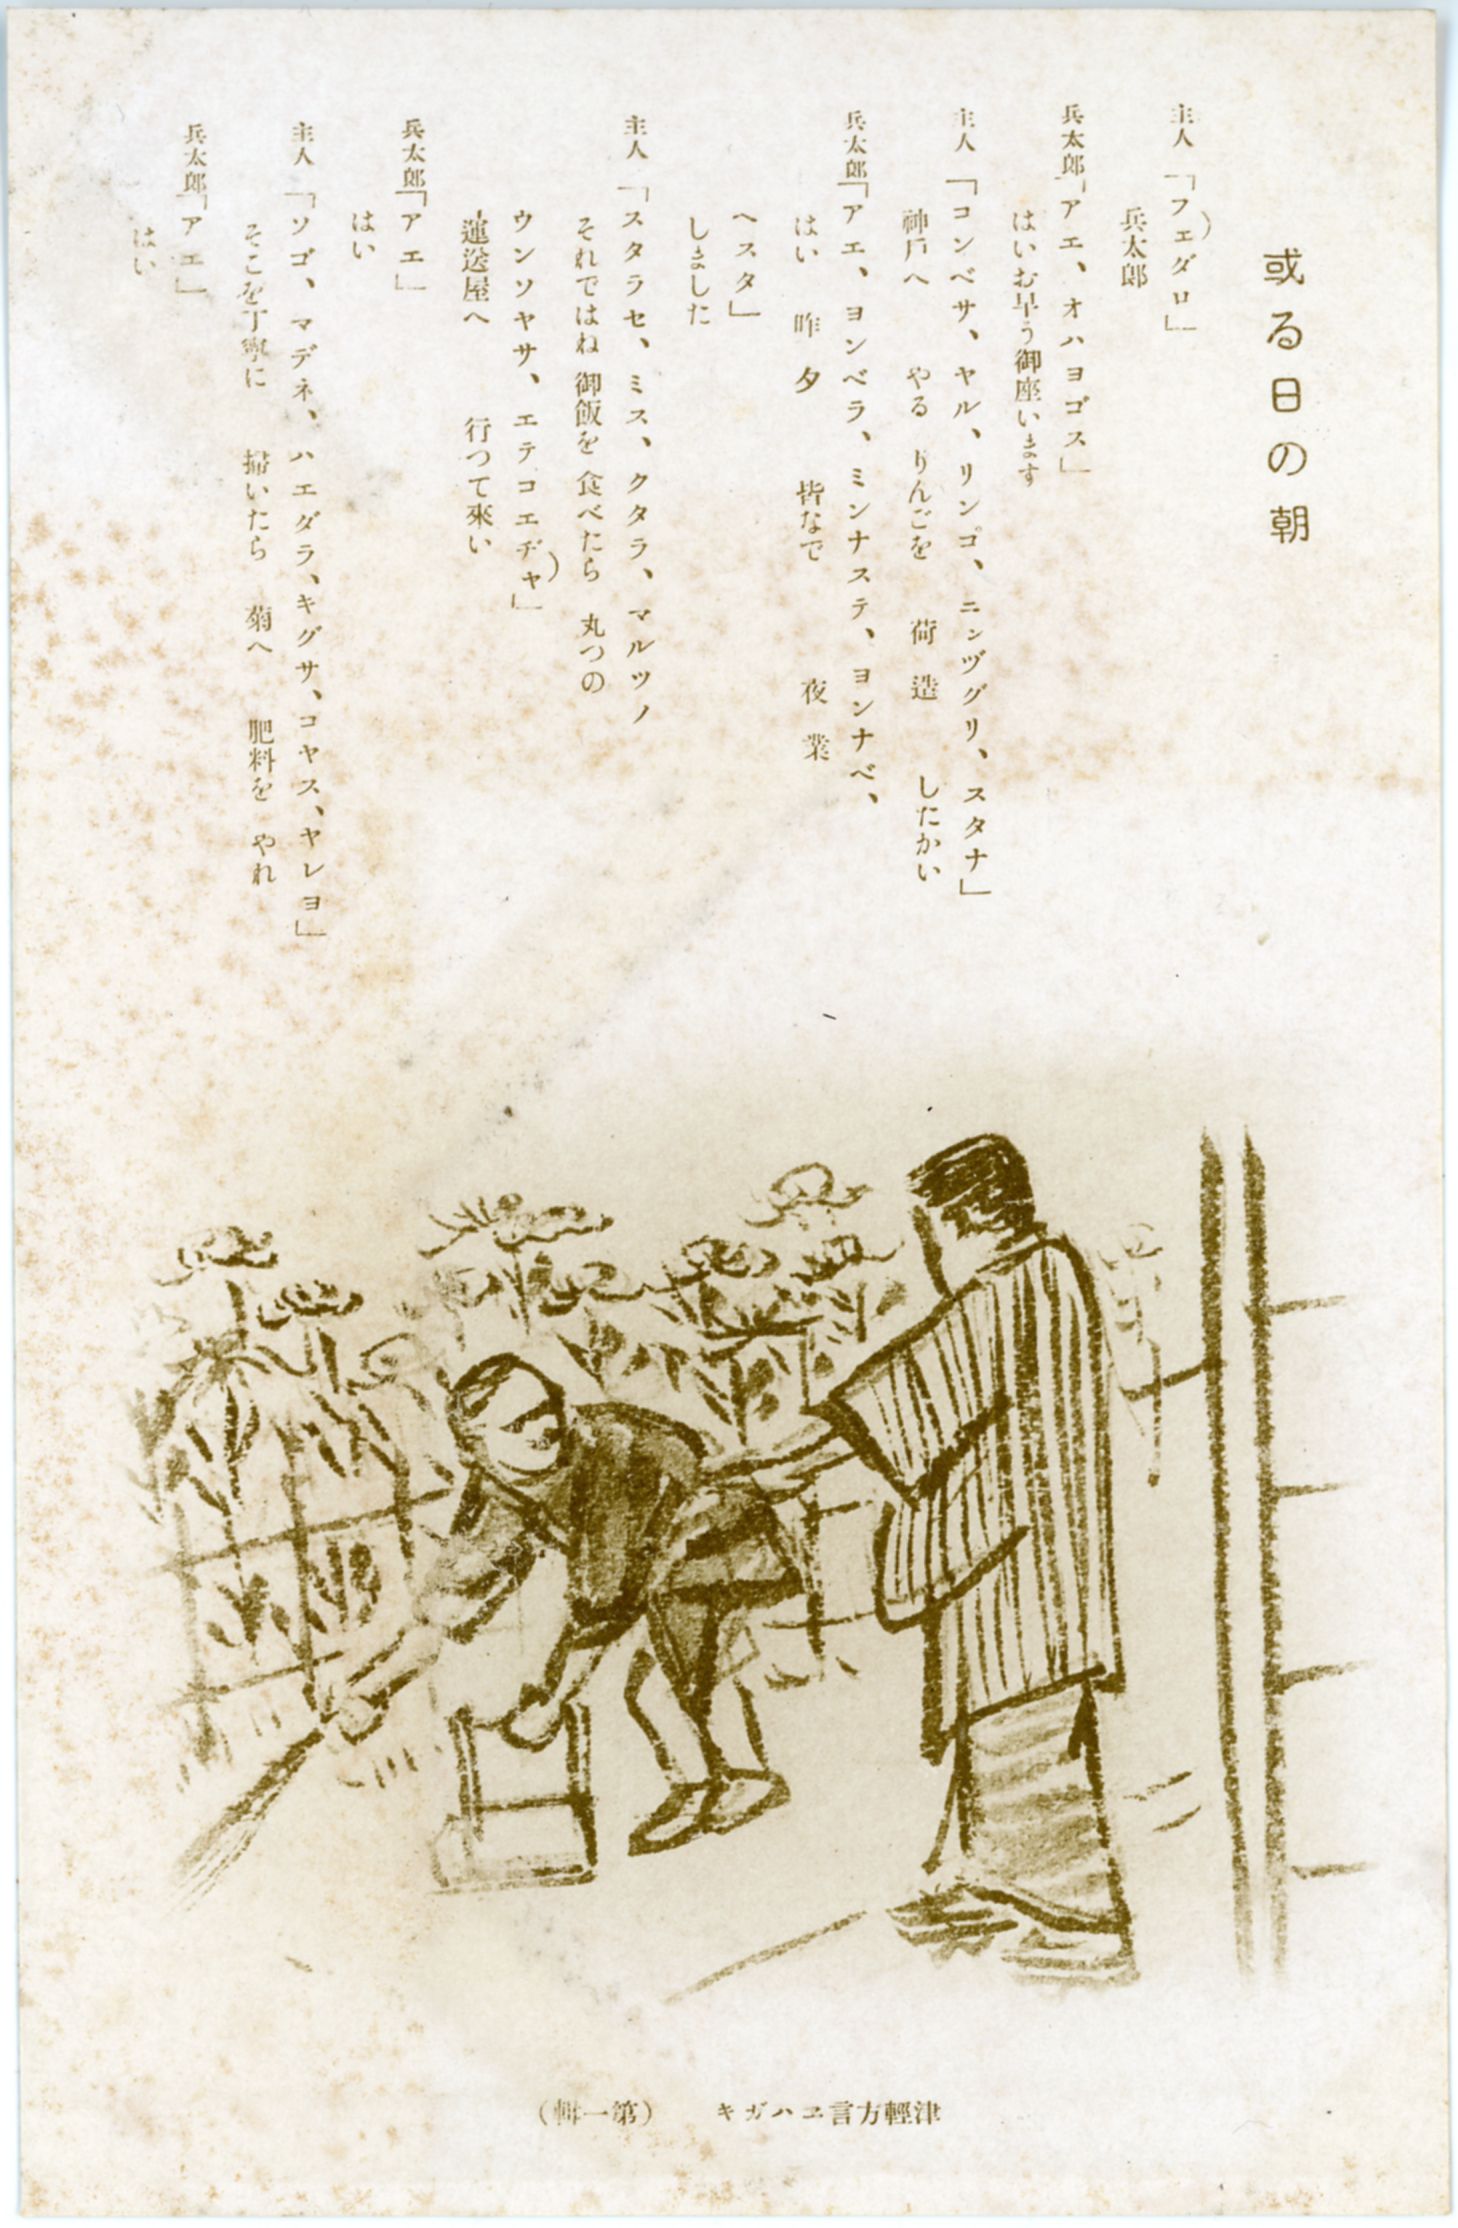 或る日の朝
主人「フェダロ」
兵太郎
兵太郎「アエ、オハヨゴス」
はいお早う御座います
主人「コンベサ、ヤル、リンゴ、ニンヅグリ、スタナ」
神戸へ やる りんごを 荷造 したかい
兵太郎「アエ、ヨンベラ、ミンナステ、ヨンナベ、
はい 昨夕 皆なで 夜業
ヘスタ」
しました
主人「スタラセ、ミス、クタラ、マルツノ
それではね 御飯を 食べたら 丸つの
ウンソヤサ、エテコエヂャ」
運送屋へ 行つて來い
兵太郎「アエ」
はい
主人「ソゴ、マデネ、ハエダラ、キグサ、コヤス、ヤレヨ」
そこを丁寧に 掃いたら 菊へ 肥料を やれ
兵太郎「アエ」
はい
津輕方言ヱハガキ (第一輯)